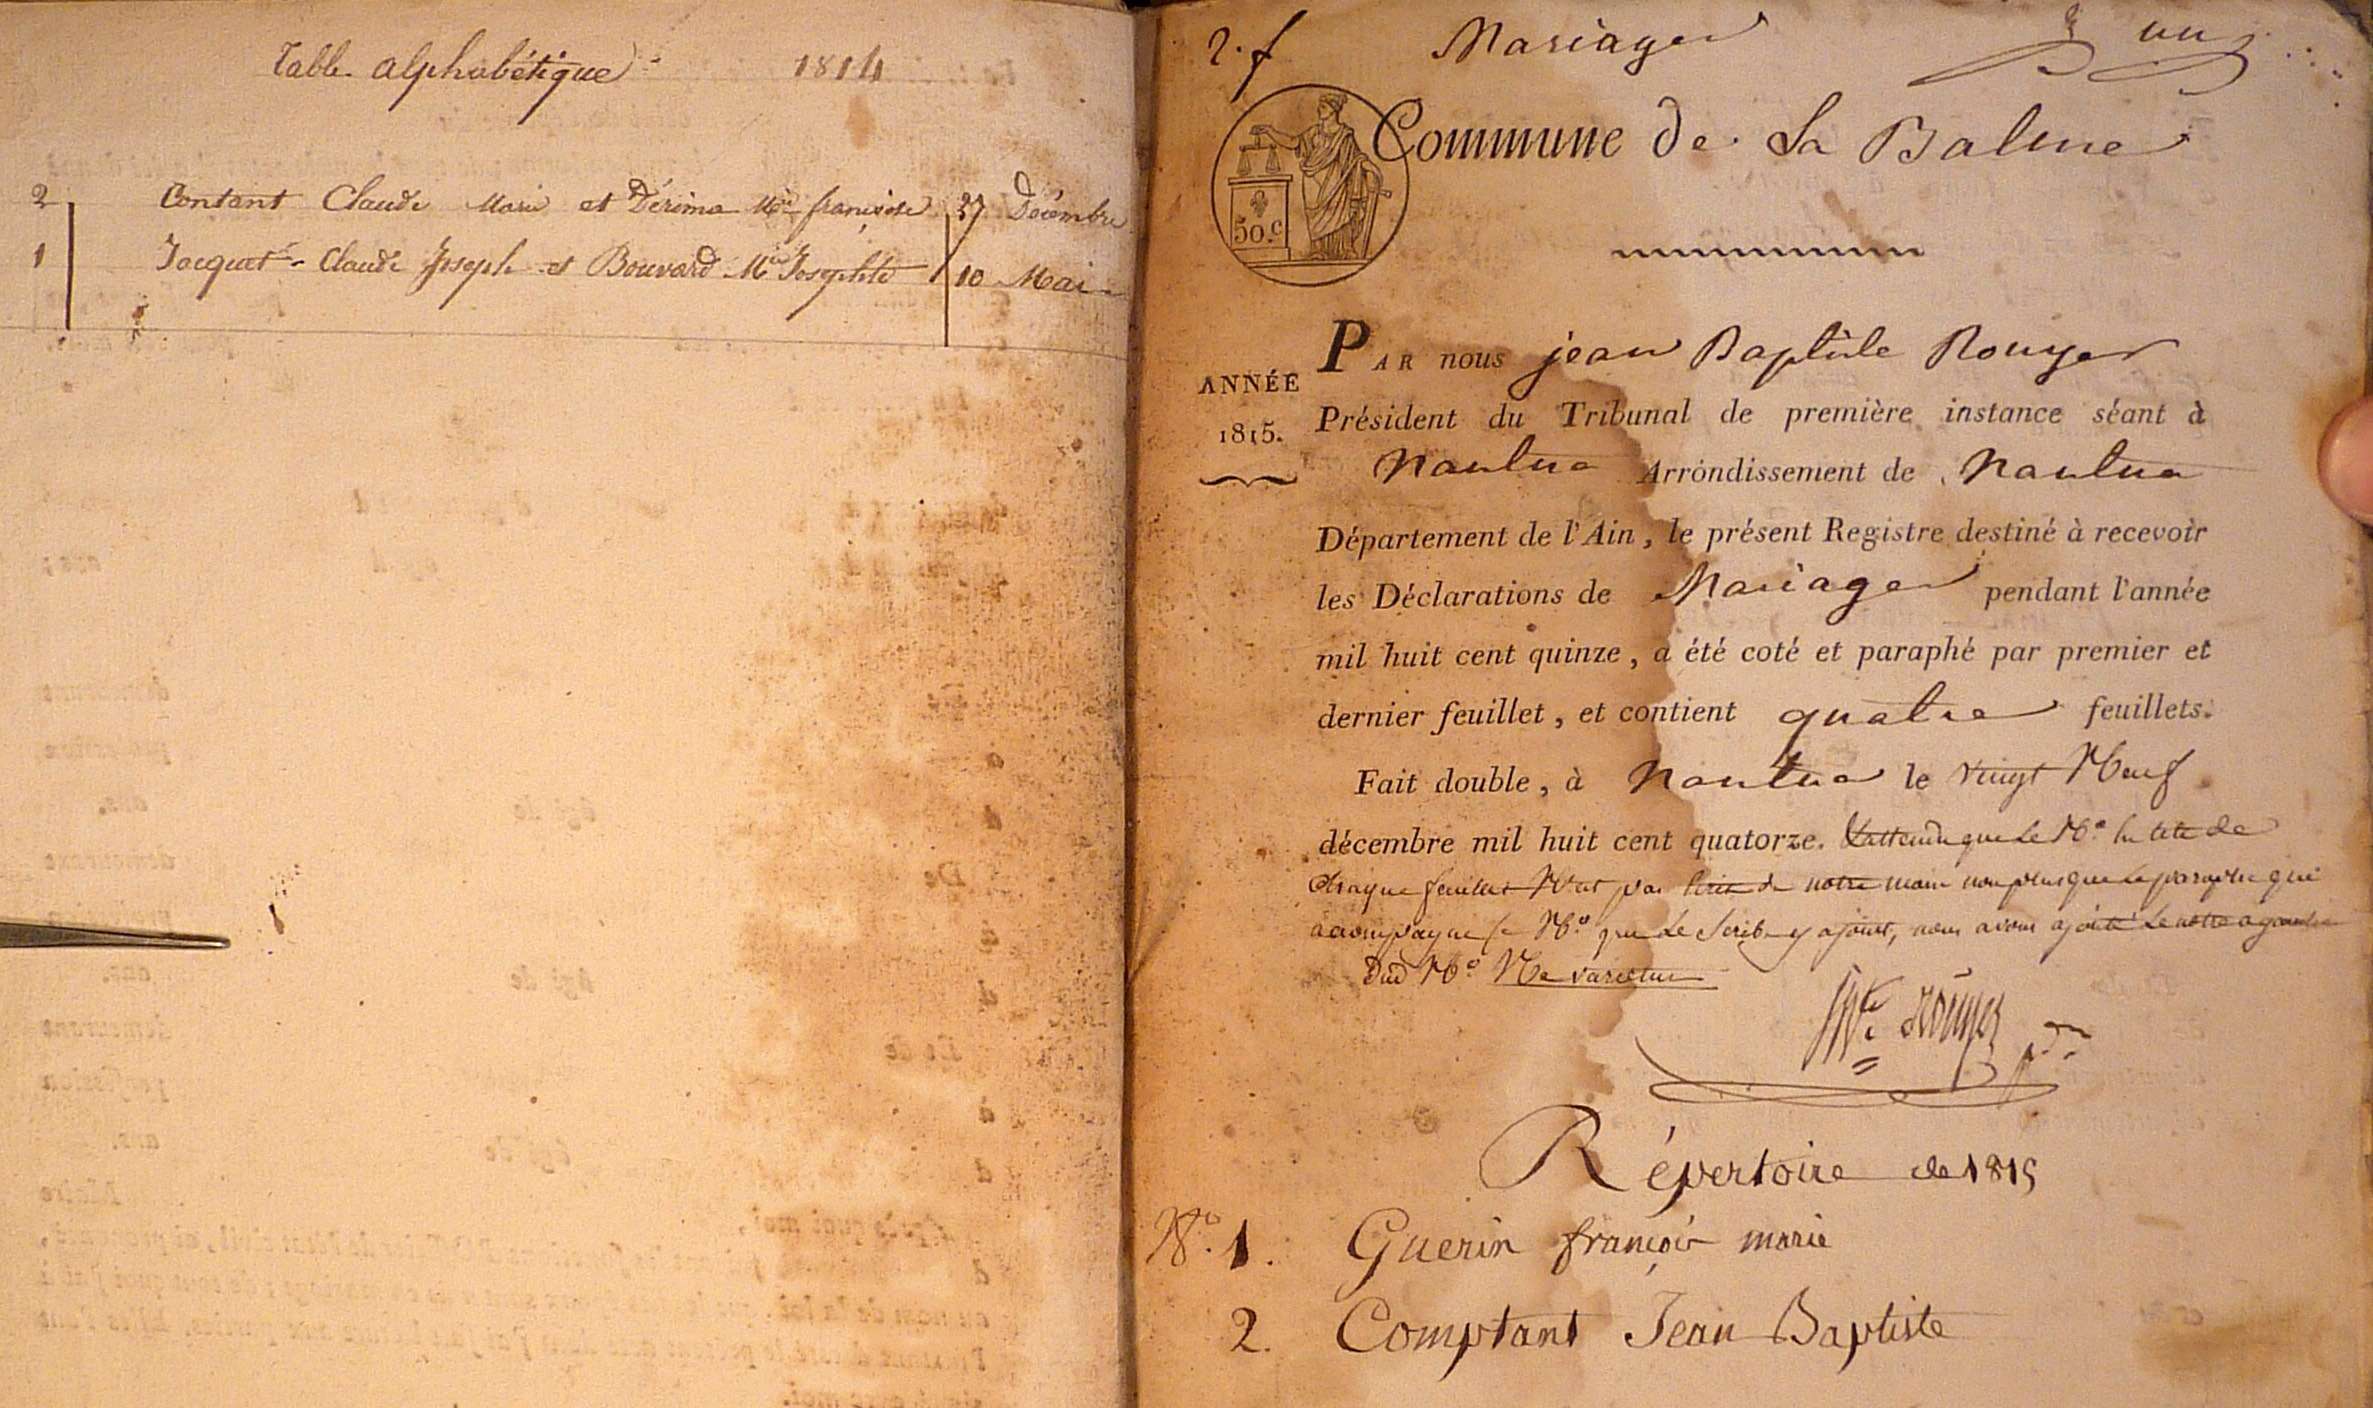 Table alphabétique 1814
2 Contant Claude Marie et Dérima Mie françoise 27 Décembre
1 Jacquet Claude Joseph et Bouvard Mie Josephte 10 Mai
2.f Mariages un
Commune de La Balme
50.c
ANNÉE
1815.
PAR nous jean Baptiste Rouyer
Président du Tribunal de première instance séant à
Nantua Arrondissement de Nantua
Département de l'Ain, le présent Registre destiné à recevoir
les Déclarations de Mariages pendant l'année
mil huit cent quinze, a été coté et paraphé par premier et
dernier feuillet, et contient quatre feuillets.
Fait double, à Nantua le vingt Neuf
décembre mil huit cent quatorze. Et attendu que Le No. en tete de
Chaque feuillet N'est pas écrit de notre main non plus que Le paraphe qui
accompagne le No. que Le Scribe y ajout, nous avons ajouté Le notre a gauche
Dud No. Ne varietur
Bte Rouyer pdt
Répertoire de 1815
No. 1. Guerin françois marie
2. Comptant Jean Baptiste